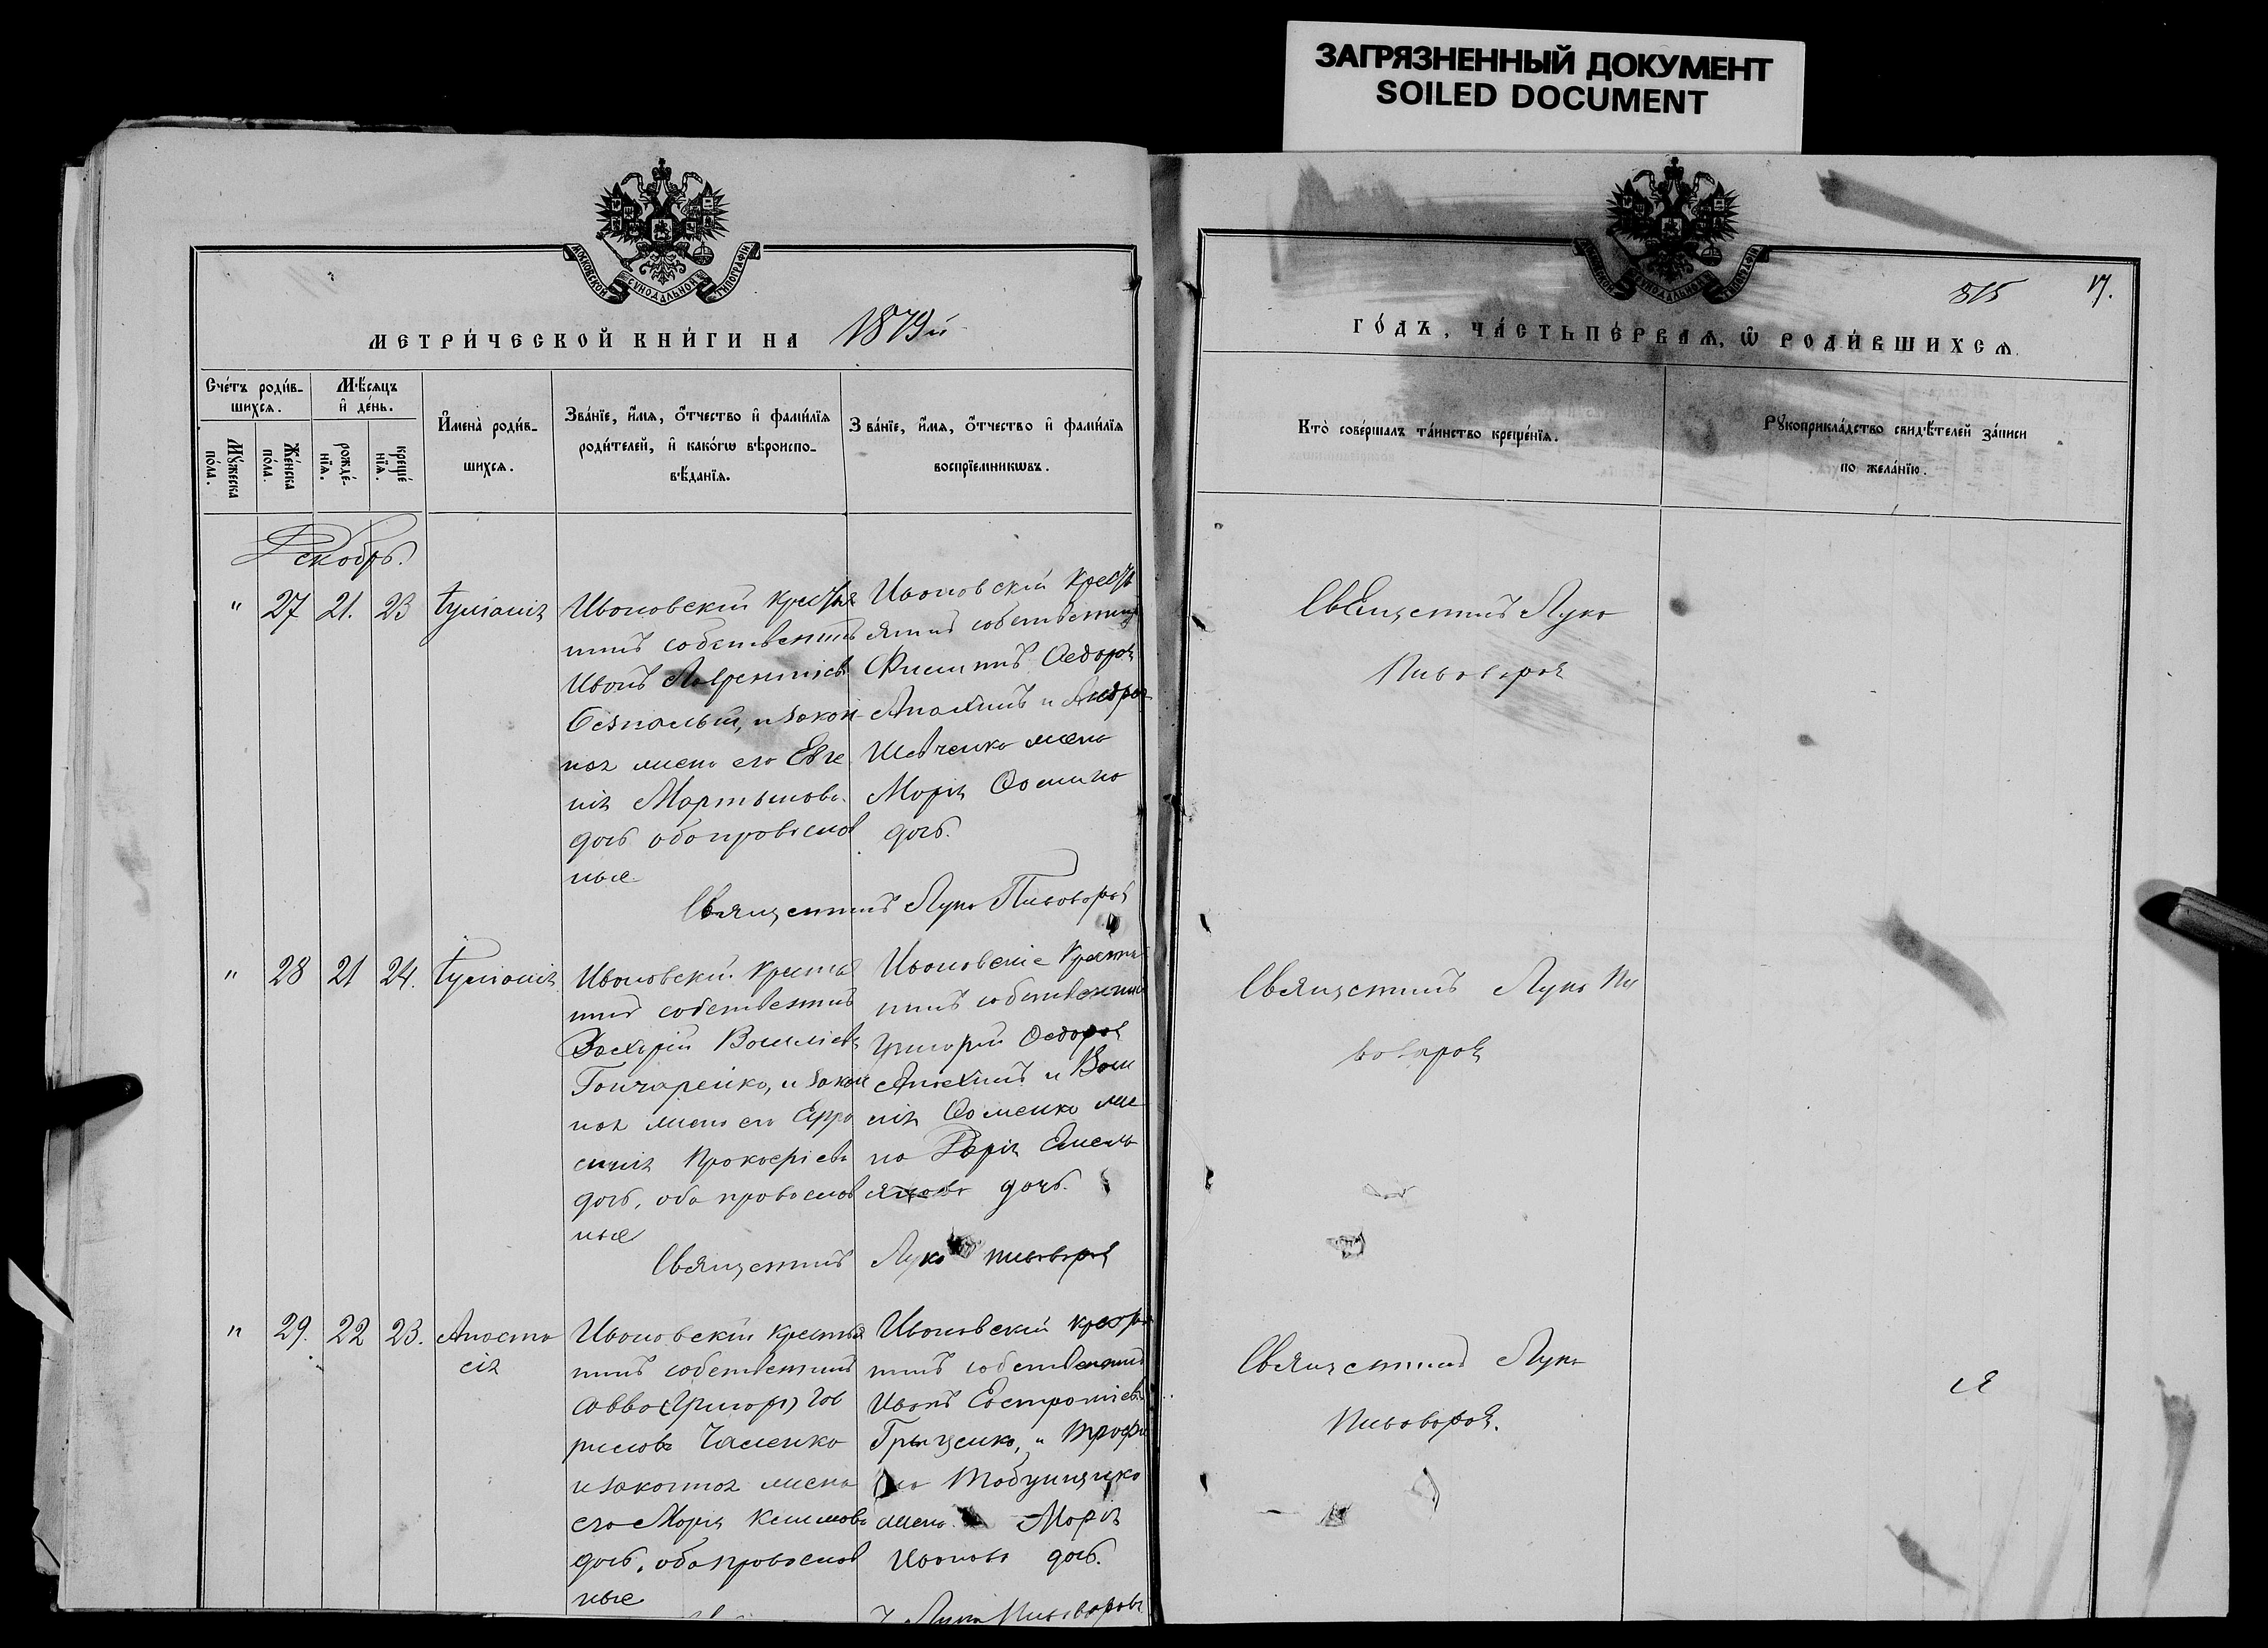 ЗАГРЯЗНЕННЫЙ ДОКУМЕНТ
SOILED DOCUMENT
МОСКОВСКОЙ СѴНОДАЛЬНОЙ ТИПОГРАФІИ
МЕТРИ́ЧЕСКОЙ КНИ́ГИ НА 1879й
Сче́тъ роди́в-
шихсѧ.
Мѣ́сѧцъ
и҆ де́нь.
Мꙋ́жеска
по́ла.
Же́нска
по́ла.
рожде́-
нїѧ.
креще́
нїѧ.
И҆мена̀ роди́в-
шихсѧ.
Зва́нїе, и҆́мѧ, ѻ҆́тчество и҆ фами́лїѧ
роди́телей, и҆ како́гѡ вѣроиспо-
вѣ́данїѧ.
Зва́нїе, и҆́мѧ, ѻ҆́тчество и҆ фами́лїѧ
воспрїе́мникѡвъ.
Декабрь.
" 27 21. 23 Іуліанія
Ивановскій крестья
нинъ собственникъ
Иванъ Лаврентіевъ
Безпалый, и закон
ная жена его Евге
нія Мартынова
дочь оба православ
ные
Ивановскій крестья
янинъ собственникъ
Филиппъ Ѳедоровъ
Анохинъ и
Шевченко жена
Марія Ѳомина
дочь.
Священникъ Лука Пивоваровъ
" 28 21 24. Іуліанія
Ивановскій крестья
нинъ собственникъ
Захарій Василіевъ
Гончаренко, и закон
ная жена его Ефро
синія Прокофіева
дочь, оба православ
ные
Ивановскіе крестья
нинъ собственникъ
Григорій Ѳедоровъ
Анохинъ и Васи
лія Ѳоменко же
на Дарія Емель
янова дочь.
Священникъ Лука Пивоваровъ
" 29. 22 23. Анаста
сія
Ивановскій крестья
нинъ собственникъ
Савва (Григор) Гав
риловъ Чаленко
и законная жена
его Марія Климова
дочь, оба православ
ные
Ивановскій крестья
нинъ собственникъ
Иванъ Евстратіевъ
Грыценко, и Трофи
ма
жена Марія
Иванова дочь.
Лука Пивоваровъ
815 17.
ГО́ДЪ, ЧА́СТЬ ПЕ́РВАѦ, Ѡ҆ РОДИ́ВШИХСѦ.
Кто̀ соверша́лъ та́инство креще́нїѧ.
Рꙋкоприкла́дство свидѣ́телей за́писи
по жела́нїю.
Священникъ Лука
Пивоваровъ
Священникъ Лука Пи
воваровъ
Священникъ Лука
Пивоваровъ.